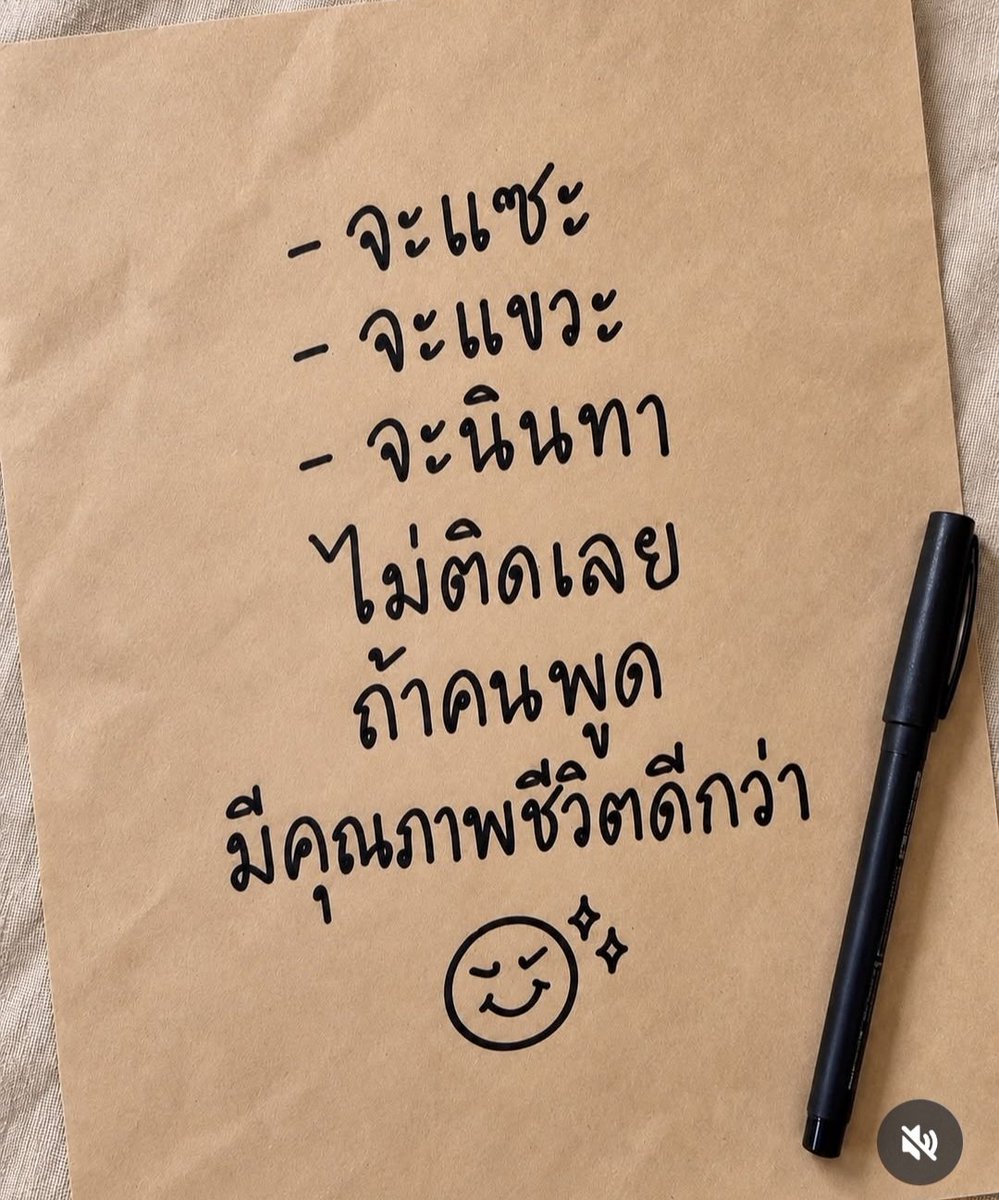 - จะแซะ
- จะแขวะ
- จะนินทา
ไม่ติดเลย
ถ้าคนพูด
มีคุณภาพชีวิตดีกว่า